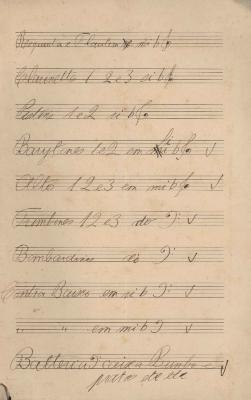 Requinta e Flautim mi b
Clarinetto 1 2 e 3 si b
1 e 2 si b
Barytonos 1 e 2 em si b
Alto 1 2 e 3 em mi b
Trombones 1 2 e 3 do
Bombardinos do
Contra Baixo em si b
" " em mi b
Batteria Caixa Bumbo
pratos etc etc